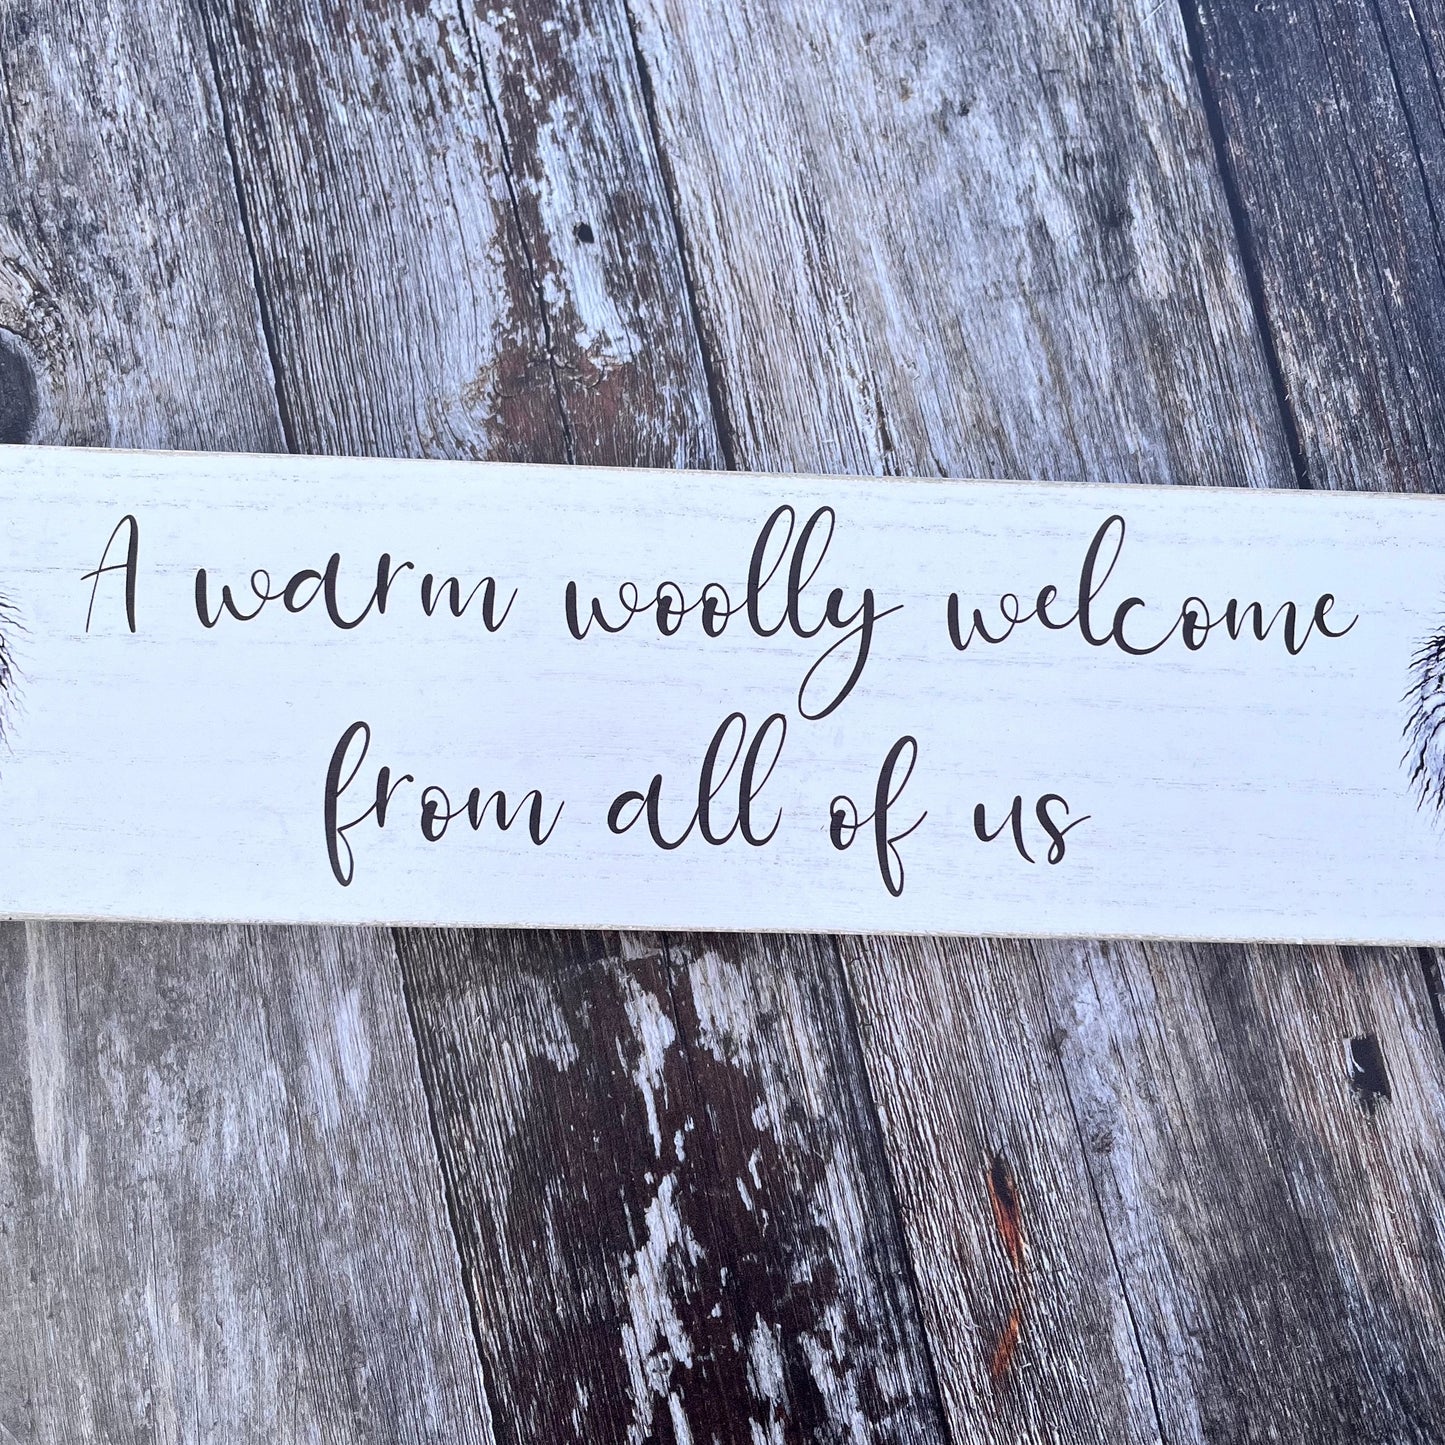 A warm woolly welcome
from all of us